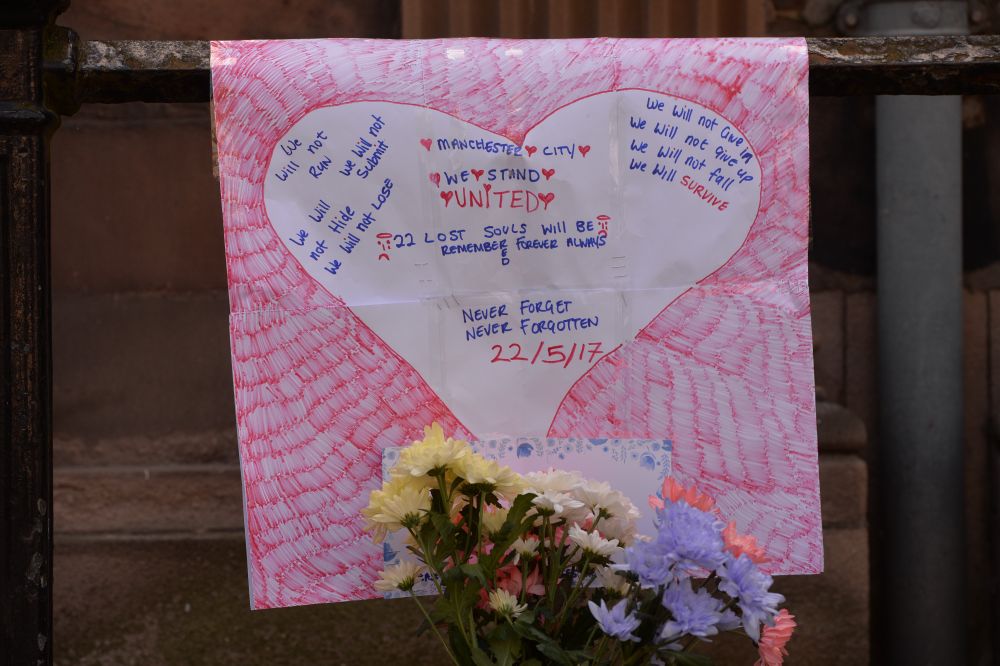 We
Will not
RUN
We will not
Submit
We will
not Hide
We will not LOSE
MANCHESTER CITY
WE STAND
UNITED
22 LOST SOULS WILL BE
REMEMBERED FOREVER ALWAYS
NEVER FORGET
NEVER FORGOTTEN
22/5/17
We will not Give in
We will not give up
We will not fall
We will SURVIVE